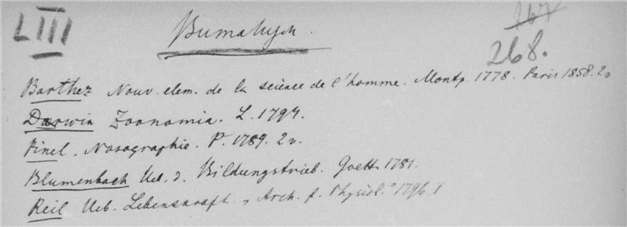 LIII
Витализм.
267
268.
Barthez Nouv. elem. de la science de l'homme. Montp. 1778. Paris 1858. 2v
Darwin Zoonomia. L. 1794.
Pinel. Nosographie. P. 1789. 2v.
Blumenbach Ueb. d. Bildungstrieb. Goett. 1781.
Reil Ueb. Lebenskraft "Arch. f. Physiol." 1796.